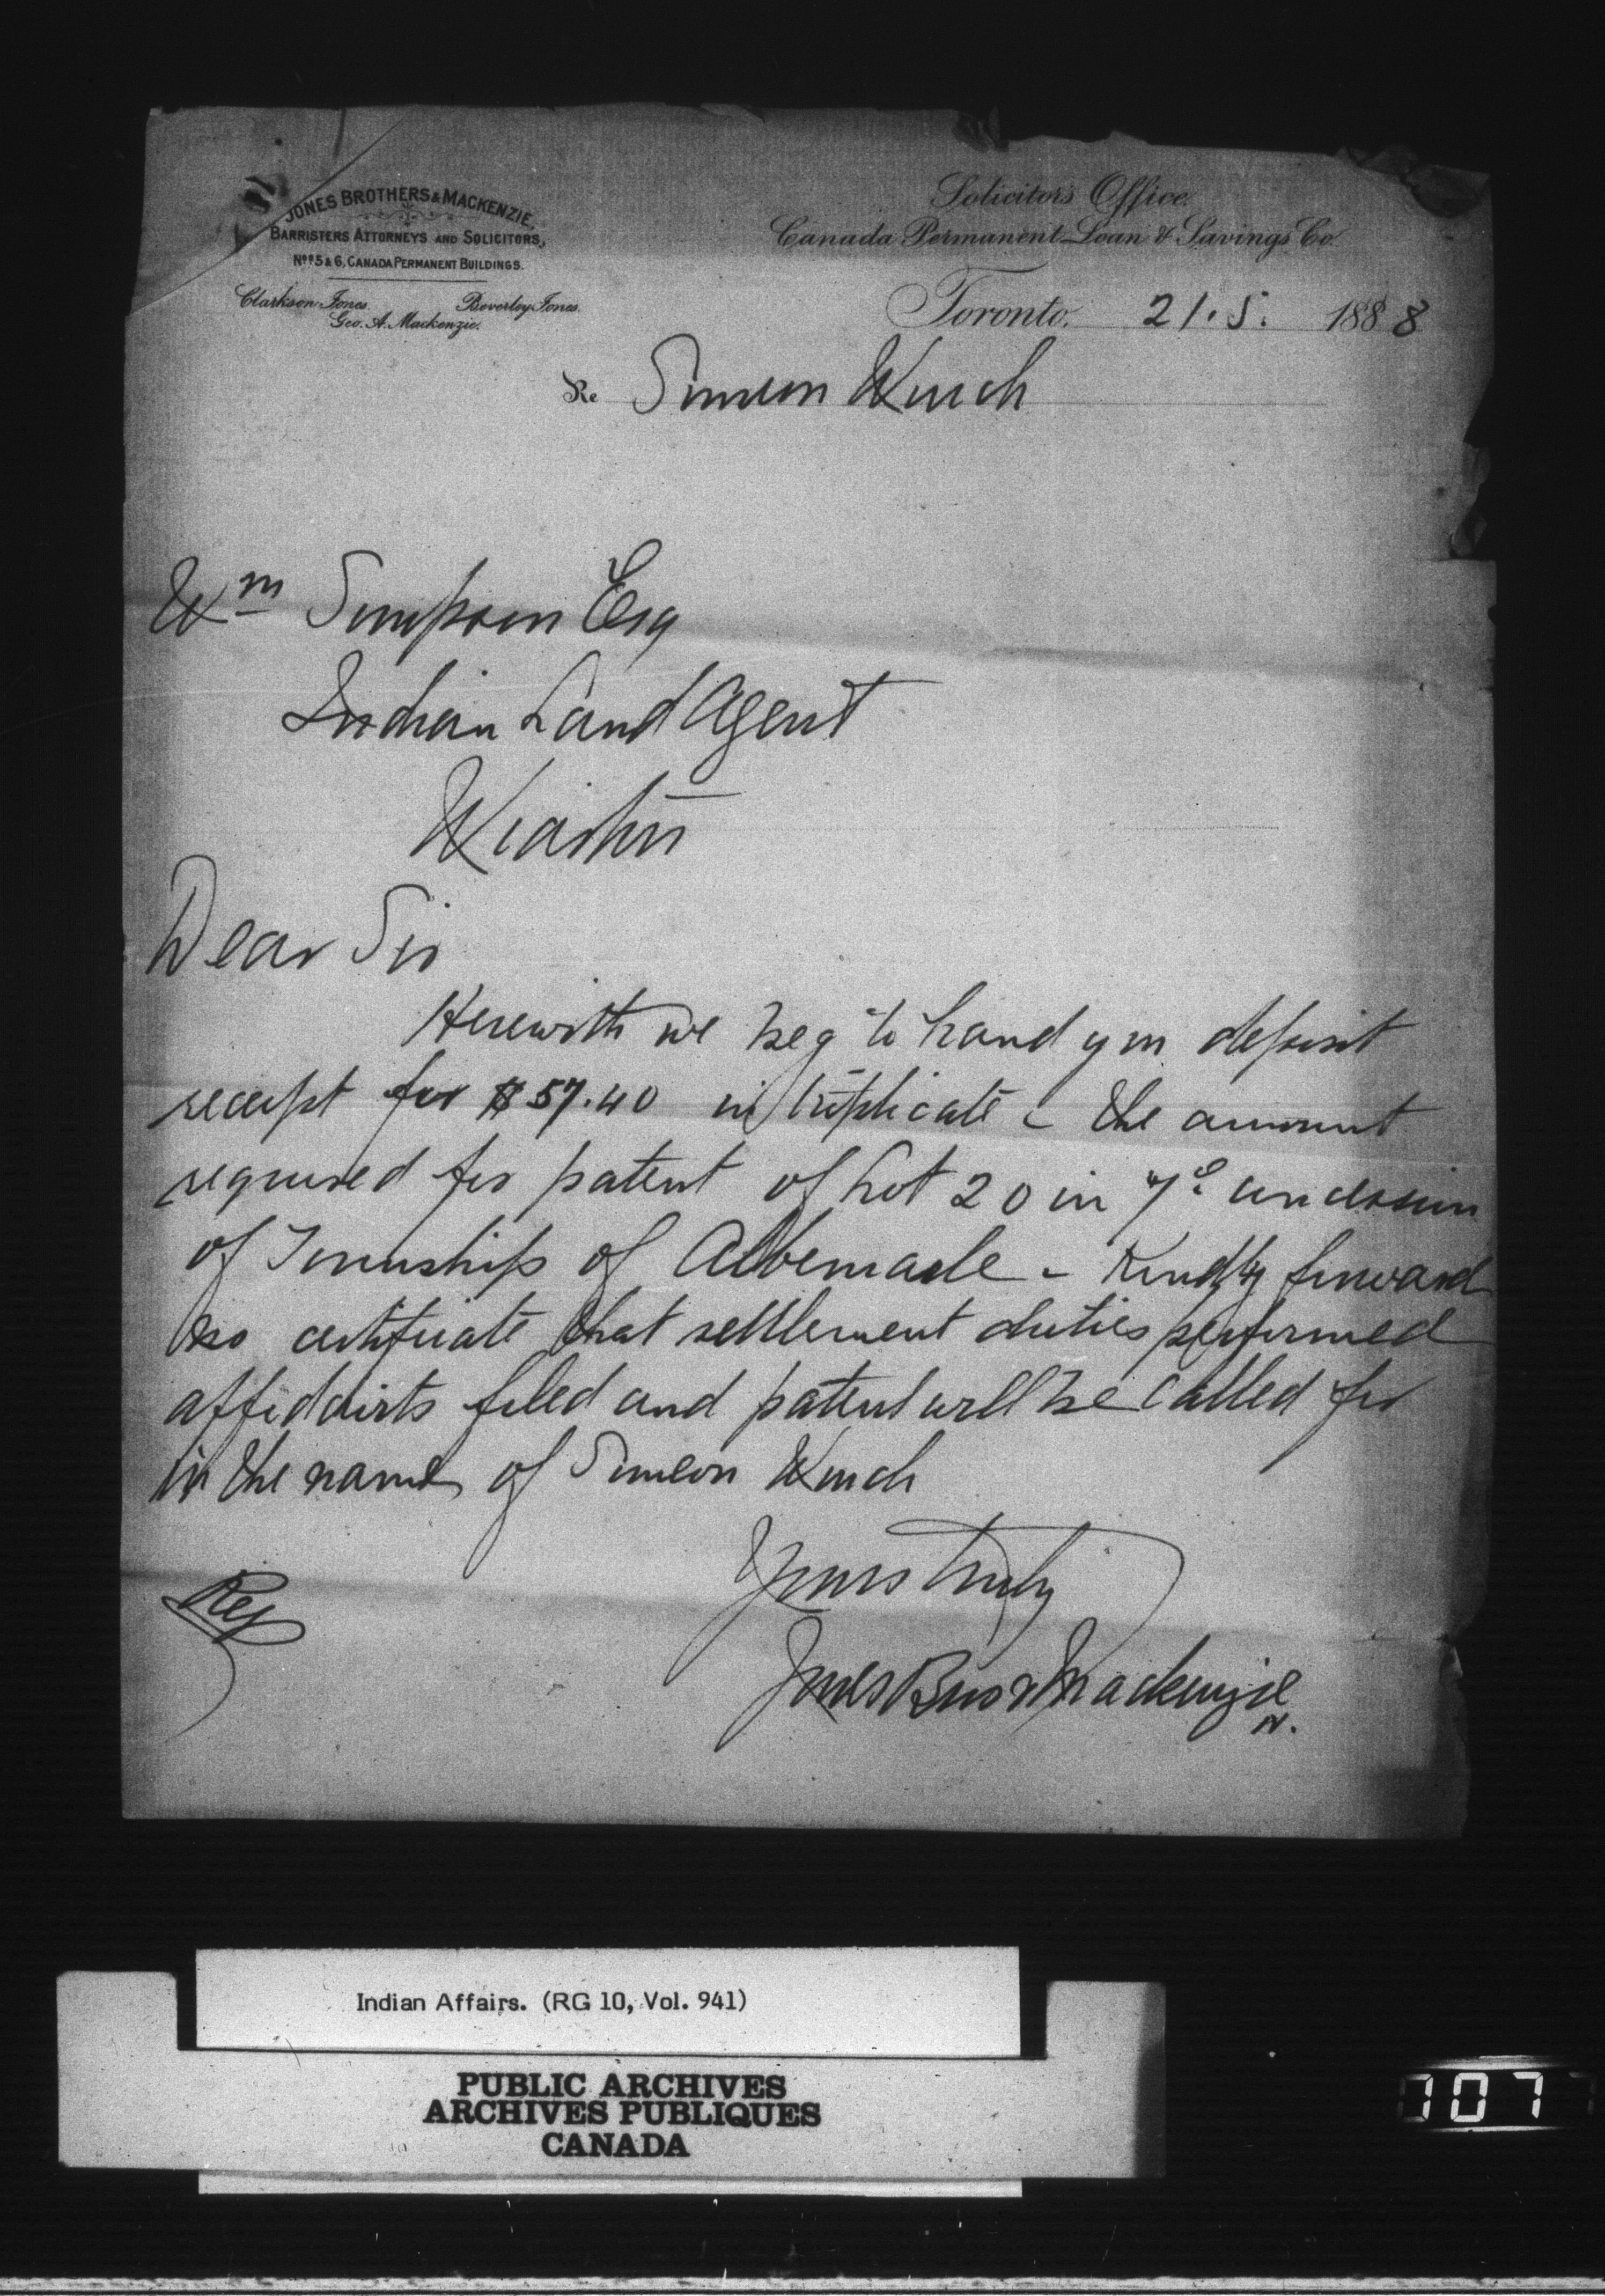 JONES BROTHERS & MACKENZIE,
BARRISTERS ATTORNEYS AND SOLICITORS,
Nos 5 & 6, CANADA PERMANENT BUILDINGS.
Clarkson Jones. Beverley Jones.
Geo. A. Mackenzie.
Solicitor's Office.
Canada Permanent Loan & Savings Co.
Toronto, 21.5. 1888
Re Simeon Winch
Wm Simpson Esq
Indian Land Agent
Wiarton
Dear Sir
Herewith we beg to hand you deposit
receipt for $57.40 in triplicate - the amount
required for patent of Lot 20 in 7th concession
of Township of Albemarle - Kindly forward
us certificate that settlement duties performed
affidavits filed and patent will be called for
in the name of Simeon Winch
Yours truly
Jones Bros & Mackenzie
N.
Reg
Indian Affairs. (RG 10, Vol. 941)
PUBLIC ARCHIVES
ARCHIVES PUBLIQUES
CANADA
707